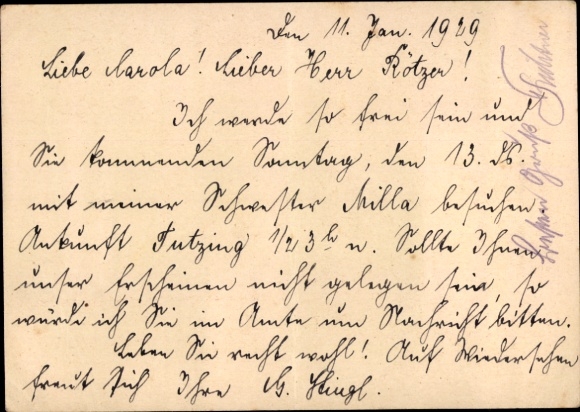 Den 11. Jan. 1929
Liebe Carola! Lieber Herr Rötzer!
Ich werde so frei sein und
Sie kommenden Sonntag, den 13. ds.
mit meiner Schwester Milla besuchen.
Ankunft Tutzing 1/2 3 h n. Sollte Ihnen
unser Erscheinen nicht gelegen sein, so
würde ich Sie im Amte um Nachricht bitten.
Leben Sie recht wohl! Auf Wiedersehen
freut sich Ihre G.
Gruß